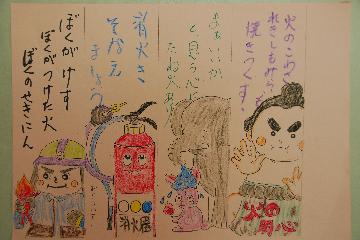 火のこわさ
れきしもみらいも
焼きつくす!
まあいいか
と、思う心に
たね火あり
消火き
そなえ
ましょう
ぼくがけす
ぼくがつけた火
ぼくのせきにん
消火器
火の
用心